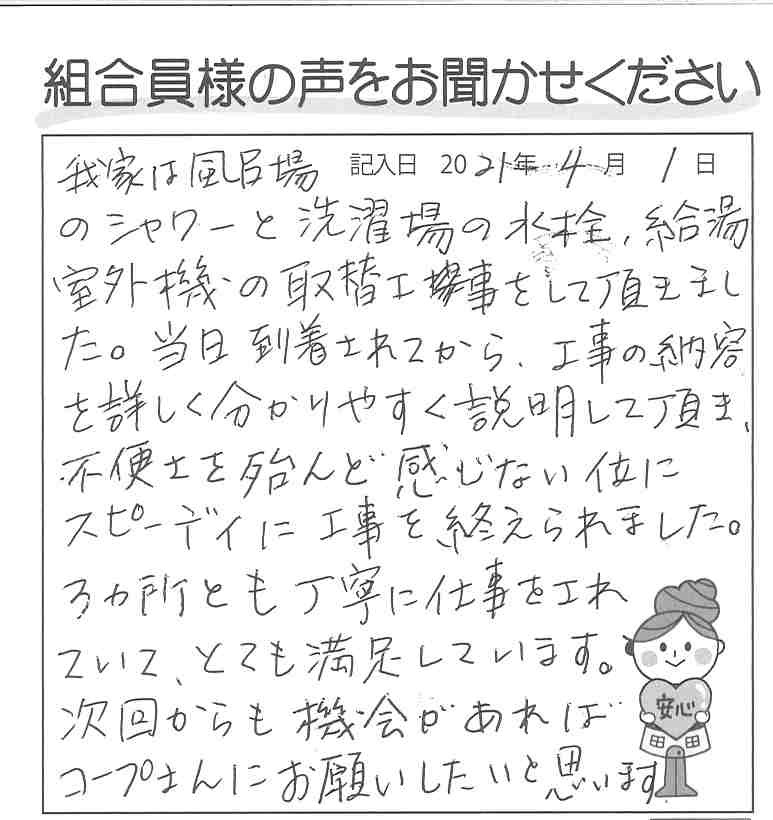 組合員様の声をお聞かせください
我家は風呂場 記入日 2021年 4月 1日
のシャワーと洗濯場の水栓、給湯
室外機の取替工事をして頂きまし
た。当日到着されてから、工事の内容
を詳しく分かりやすく説明して頂き、
不便さを殆んど感じない位に
スピーディに工事を終えられました。
3ヵ所とも丁寧に仕事をされ
ていて、とても満足しています。
次回からも機会があれば
コープさんにお願いしたいと思います
安心